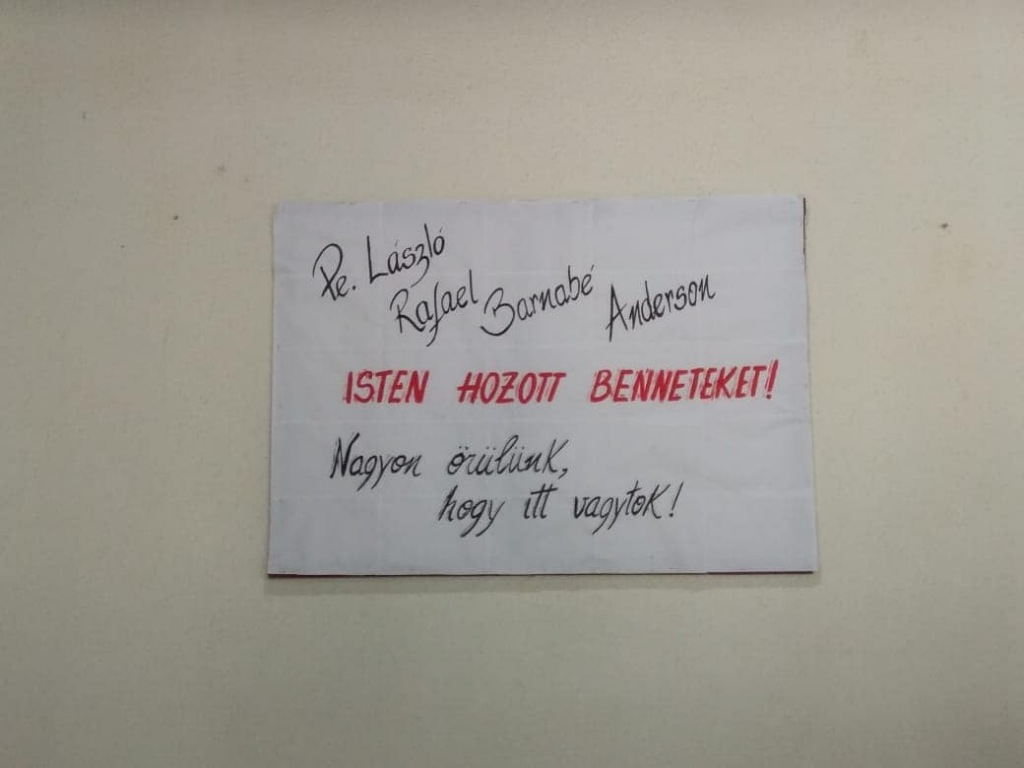 Pe. László
Rafael Barnabé Anderson
ISTEN HOZOTT BENNETEKET!
Nagyon örülünk,
hogy itt vagytok!